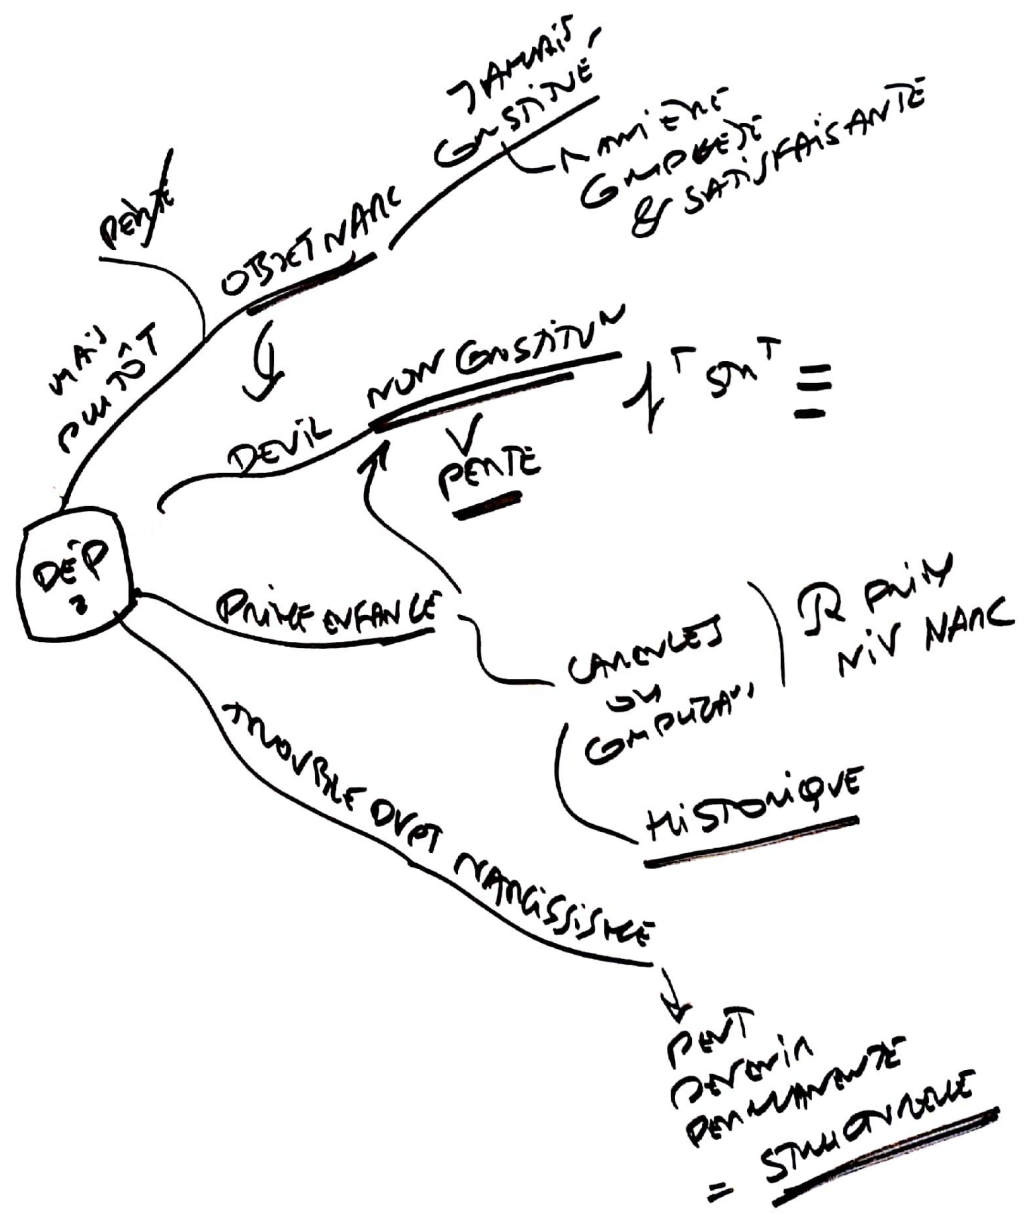 DÉP
?
MAIS
PLUTÔT
PERTE
OBJET NARC
JAMAIS
CONSTITUÉ
MANIÈRE
COMPLÈTE
& SATISFAISANTE
DEUIL
NON CONSTITUN
PERTE
PRIME ENFANCE
CARENCES
OU
COMPLICAN
R PRIM
NIV NARC
HISTORIQUE
TROUBLE DVPT NARCISSISME
PEUT
DEVENIR
PERMANENTE
= STRUCTURELLE